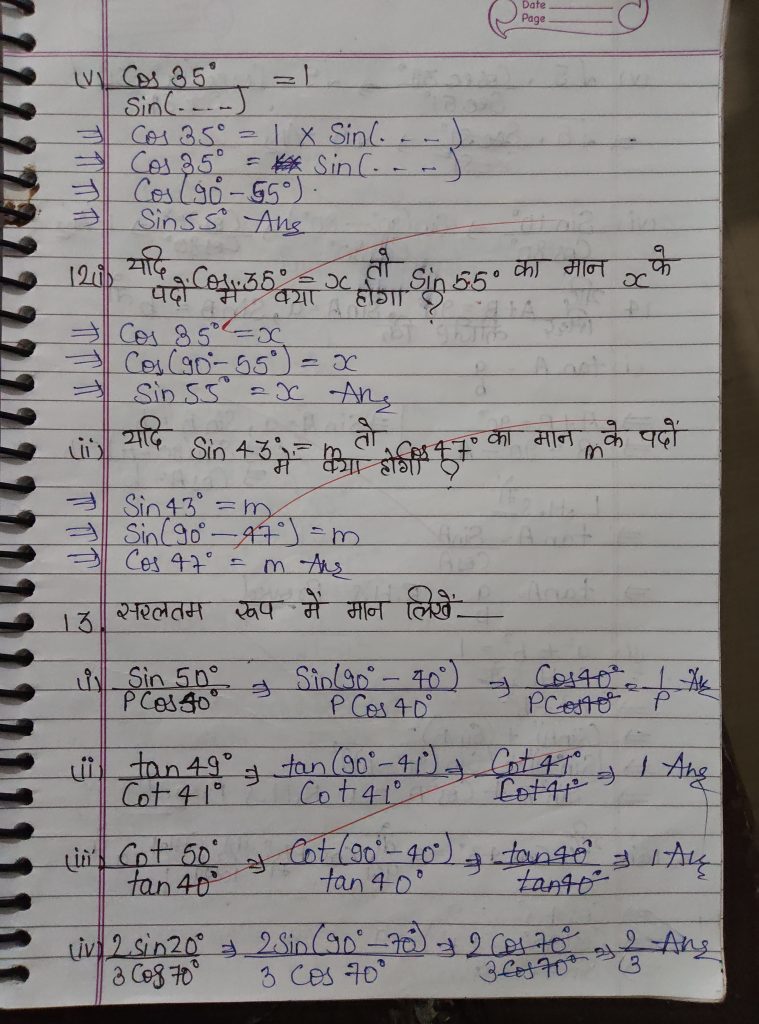 Date
Page
(v) Cos 35° / Sin(----) = 1
⇒ Cos 35° = 1 × Sin(----)
⇒ Cos 35° = Sin(----)
⇒ Cos(90°-55°)
⇒ Sin 55° Ans
12(i) यदि Cos 35° = x तो Sin 55° का मान x के
पदों में क्या होगा ?
⇒ Cos 35° = x
⇒ Cos(90°-55°) = x
⇒ Sin 55° = x Ans
(ii) यदि Sin 43° = m तो Cos 47° का मान m के पदों
में क्या होगा ?
⇒ Sin 43° = m
⇒ Sin(90°-47°) = m
⇒ Cos 47° = m Ans
13. सरलतम रूप में मान लिखें—
(i) Sin 50° / P Cos 40° ⇒ Sin(90°-40°) / P Cos 40° ⇒ Cos 40° / P Cos 40° = 1/P Ans
(ii) tan 49° / Cot 41° ⇒ tan(90°-41°) / Cot 41° ⇒ Cot 41° / Cot 41° ⇒ 1 Ans
(iii) Cot 50° / tan 40° ⇒ Cot(90°-40°) / tan 40° ⇒ tan 40° / tan 40° ⇒ 1 Ans
(iv) 2 sin 20° / 3 Cos 70° ⇒ 2 Sin(90°-70°) / 3 Cos 70° ⇒ 2 Cos 70° / 3 Cos 70° ⇒ 2/3 Ans